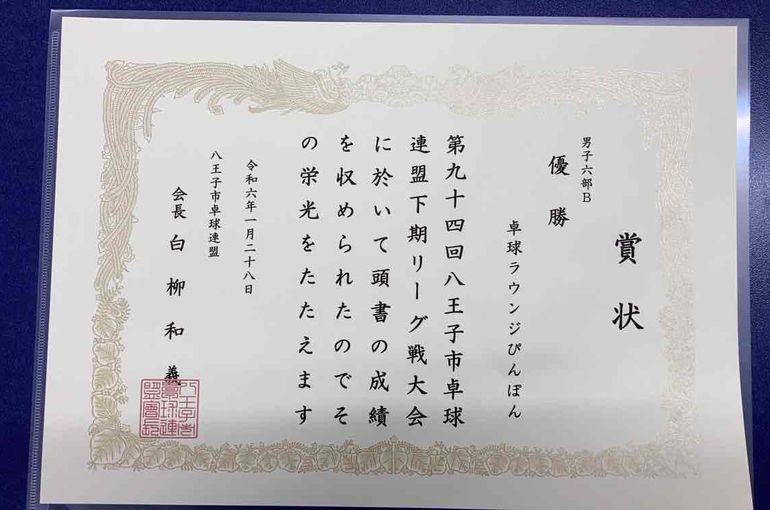 賞状
男子六部B
優勝
卓球ラウンジぴんぽん
第九十四回八王子市卓球
連盟下期リーグ戦大会
に於いて頭書の成績
を収められたのでそ
の栄光をたたえます
令和六年一月二十八日
八王子市卓球連盟
会長 白柳和義